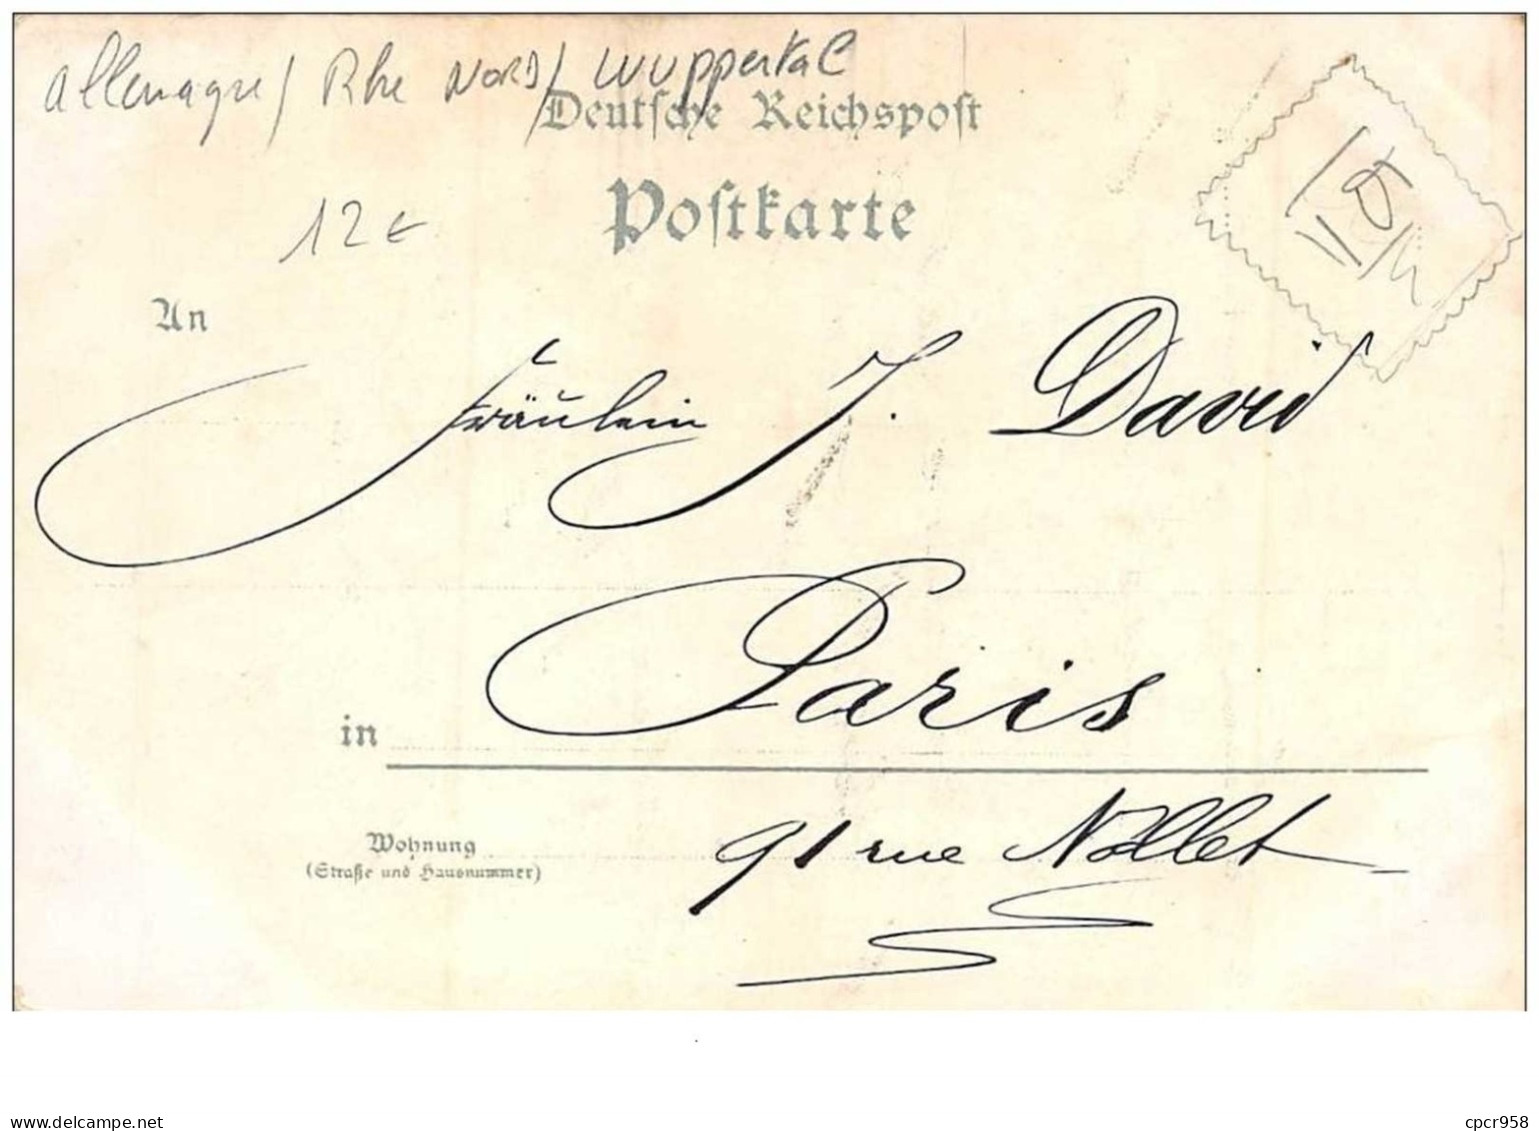 allemagne / Rhe NORD / Wuppertal
Deutsche Reichspost
Postkarte
12€
An
Fräulein J. David
in Paris
Wohnung
(Straße und Hausnummer)
91 rue Nollet
www.delcampe.net
cpcr958